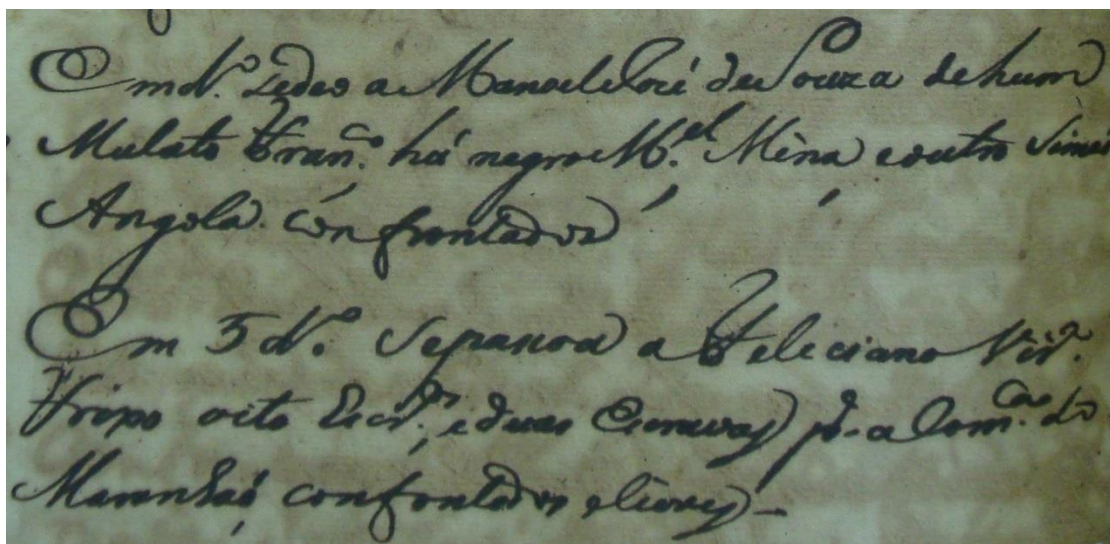 Em d.º se deo a Manoel José de Souza de hum
Mulato Fran.co há negro M.el Mina e outro
Angola confrontados
Em 5 d.º se passou a Feleciano
oito Escr.os e duas Escravas p.a a Com.ca do
Maranhaõ confrontados e